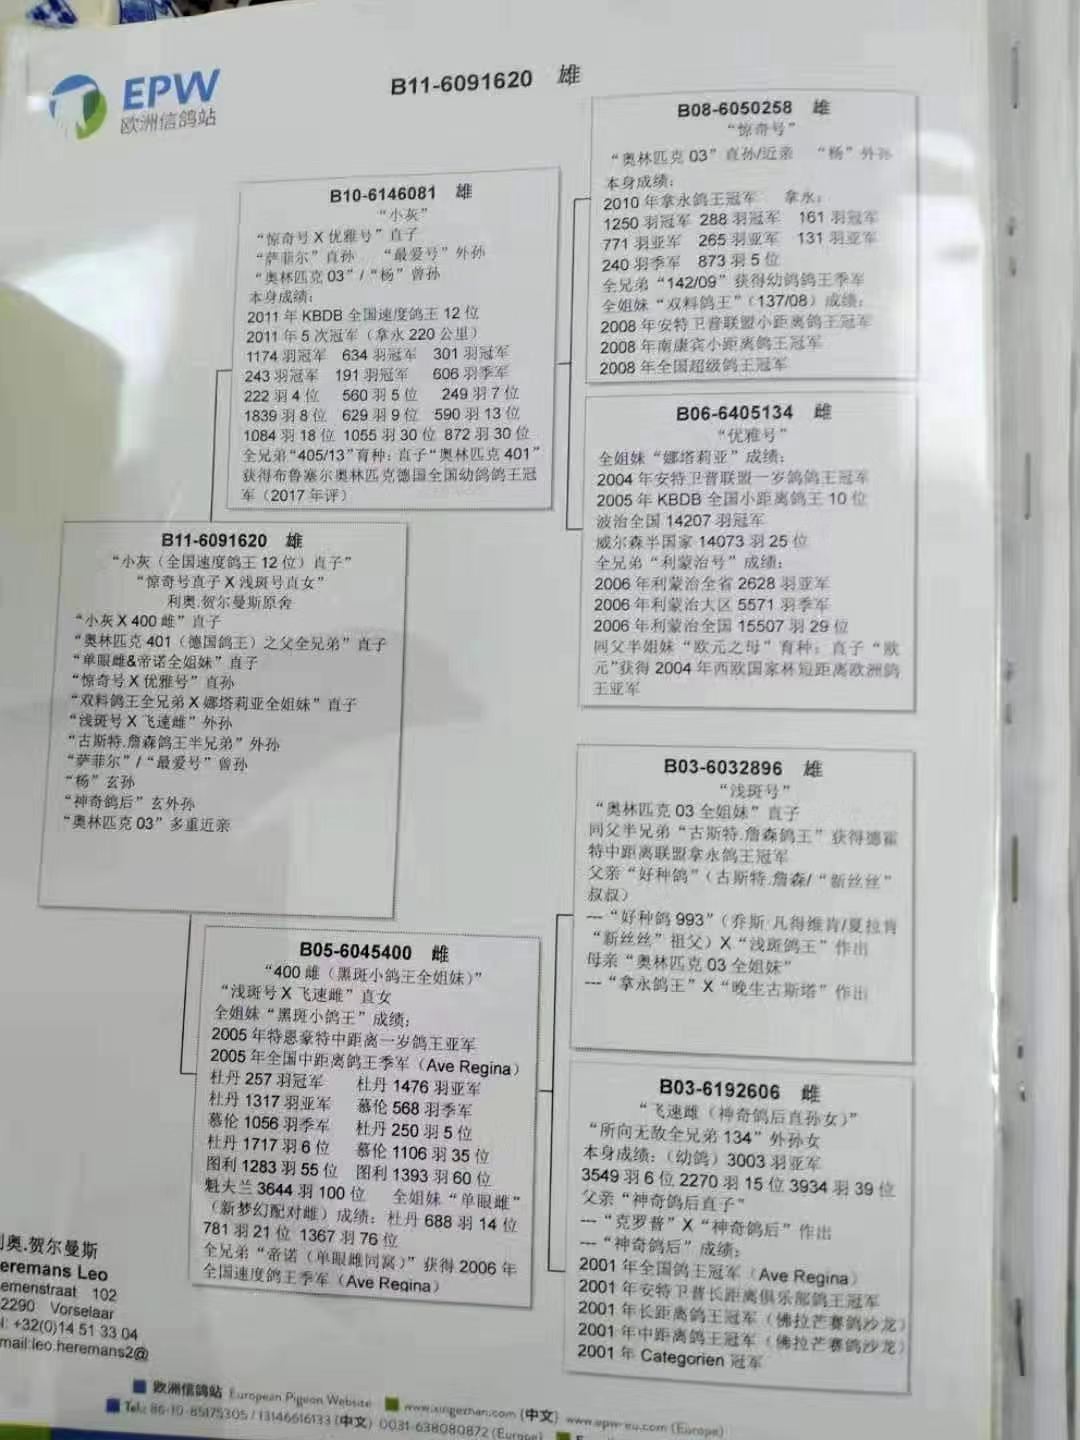 EPW
欧洲信鸽站
B11-6091620 雄
B08-6050258 雄
“惊奇号”
“奥林匹克 03”直孙/近亲 “杨”外孙
本身成绩：
2010 年拿永鸽王冠军 拿永：
1250 羽冠军 288 羽冠军 161 羽冠军
771 羽亚军 265 羽亚军 131 羽亚军
240 羽季军 873 羽 5 位
全兄弟“142/09”获得幼鸽鸽王季军
全姐妹“双料鸽王”(137/08) 成绩：
2008 年安特卫普联盟小距离鸽王冠军
2008 年南康宾小距离鸽王冠军
2008 年全国超级鸽王冠军
B10-6146081 雄
“小灰”
“惊奇号 X 优雅号”直子
“萨菲尔”直孙 “最爱号”外孙
“奥林匹克 03”/“杨”曾孙
本身成绩：
2011 年 KBDB 全国速度鸽王 12 位
2011 年 5 次冠军（拿永 220 公里）
1174 羽冠军 634 羽冠军 301 羽冠军
243 羽冠军 191 羽冠军 606 羽季军
222 羽 4 位 560 羽 5 位 249 羽 7 位
1839 羽 8 位 629 羽 9 位 590 羽 13 位
1084 羽 18 位 1055 羽 30 位 872 羽 30 位
全兄弟“405/13”育种：直子“奥林匹克 401”
获得布鲁塞尔奥林匹克德国全国幼鸽鸽王冠
军（2017 年评）
B06-6405134 雌
“优雅号”
全姐妹“娜塔莉亚”成绩：
2004 年安特卫普联盟一岁鸽鸽王冠军
2005 年 KBDB 全国小距离鸽王 10 位
波治全国 14207 羽冠军
威尔森半国家 14073 羽 25 位
全兄弟“利蒙治号”成绩：
2006 年利蒙治全省 2628 羽亚军
2006 年利蒙治大区 5571 羽季军
2006 年利蒙治全国 15507 羽 29 位
同父半姐妹“欧元之母”育种：直子“欧
元”获得 2004 年西欧国家杯短距离欧洲鸽
王亚军
B11-6091620 雄
“小灰（全国速度鸽王 12 位）直子”
“惊奇号直子 X 浅斑号直女”
利奥.贺尔曼斯原舍
“小灰 X 400 雌”直子
“奥林匹克 401（德国鸽王）之父全兄弟”直子
“单眼雌&帝诺全姐妹”直子
“惊奇号 X 优雅号”直孙
“双料鸽王全兄弟 X 娜塔莉亚全姐妹”直子
“浅斑号 X 飞速雌”外孙
“古斯特.詹森鸽王半兄弟”外孙
“萨菲尔”/“最爱号”曾孙
“杨”玄孙
“神奇鸽后”玄外孙
“奥林匹克 03”多重近亲
B03-6032896 雄
“浅斑号”
“奥林匹克 03 全姐妹”直子
同父半兄弟“古斯特.詹森鸽王”获得德霍
特中距离联盟拿永鸽王冠军
父亲“好种鸽”（古斯特.詹森/“新丝丝”
叔叔）
---“好种鸽 993”（乔斯·凡得维肯/夏拉肯
“新丝丝”祖父）X“浅斑鸽王”作出
母亲“奥林匹克 03 全姐妹”
---“拿永鸽王”X“晚生古斯塔”作出
B05-6045400 雌
“400 雌（黑斑小鸽王全姐妹）”
“浅斑号 X 飞速雌”直女
全姐妹“黑斑小鸽王”成绩：
2005 年特恩豪特中距离一岁鸽王亚军
2005 年全国中距离鸽王季军（Ave Regina）
杜丹 257 羽冠军 杜丹 1476 羽亚军
杜丹 1317 羽亚军 慕伦 568 羽季军
慕伦 1056 羽季军 杜丹 250 羽 5 位
杜丹 1717 羽 6 位 慕伦 1106 羽 35 位
图利 1283 羽 55 位 图利 1393 羽 60 位
魁夫兰 3644 羽 100 位 全姐妹“单眼雌”
（新梦幻配对雌）成绩：杜丹 688 羽 14 位
781 羽 21 位 1367 羽 76 位
全兄弟“帝诺（单眼雌同窝）”获得 2006 年
全国速度鸽王季军（Ave Regina）
B03-6192606 雌
“飞速雌（神奇鸽后直孙女）”
“所向无敌全兄弟 134”外孙女
本身成绩：（幼鸽）3003 羽亚军
3549 羽 6 位 2270 羽 15 位 3934 羽 39 位
父亲“神奇鸽后直子”
---“克罗普”X“神奇鸽后”作出
---“神奇鸽后”成绩：
2001 年全国鸽王冠军（Ave Regina）
2001 年安特卫普长距离俱乐部鸽王冠军
2001 年长距离鸽王冠军（佛拉芒赛鸽沙龙）
2001 年中距离鸽王冠军（佛拉芒赛鸽沙龙）
2001 年 Categorien 冠军
利奥.贺尔曼斯
eremans Leo
emenstraat 102
2290 Vorselaar
l: +32(0)14 51 33 04
mail:leo.heremans2@
欧洲信鸽站 European Pigeon Website www.xingezhan.com (中文) www.epw-eu.com (Europe)
Tel: 86-10-85175305 / 13146616133 (中文) 0031-638080872 (Europe)